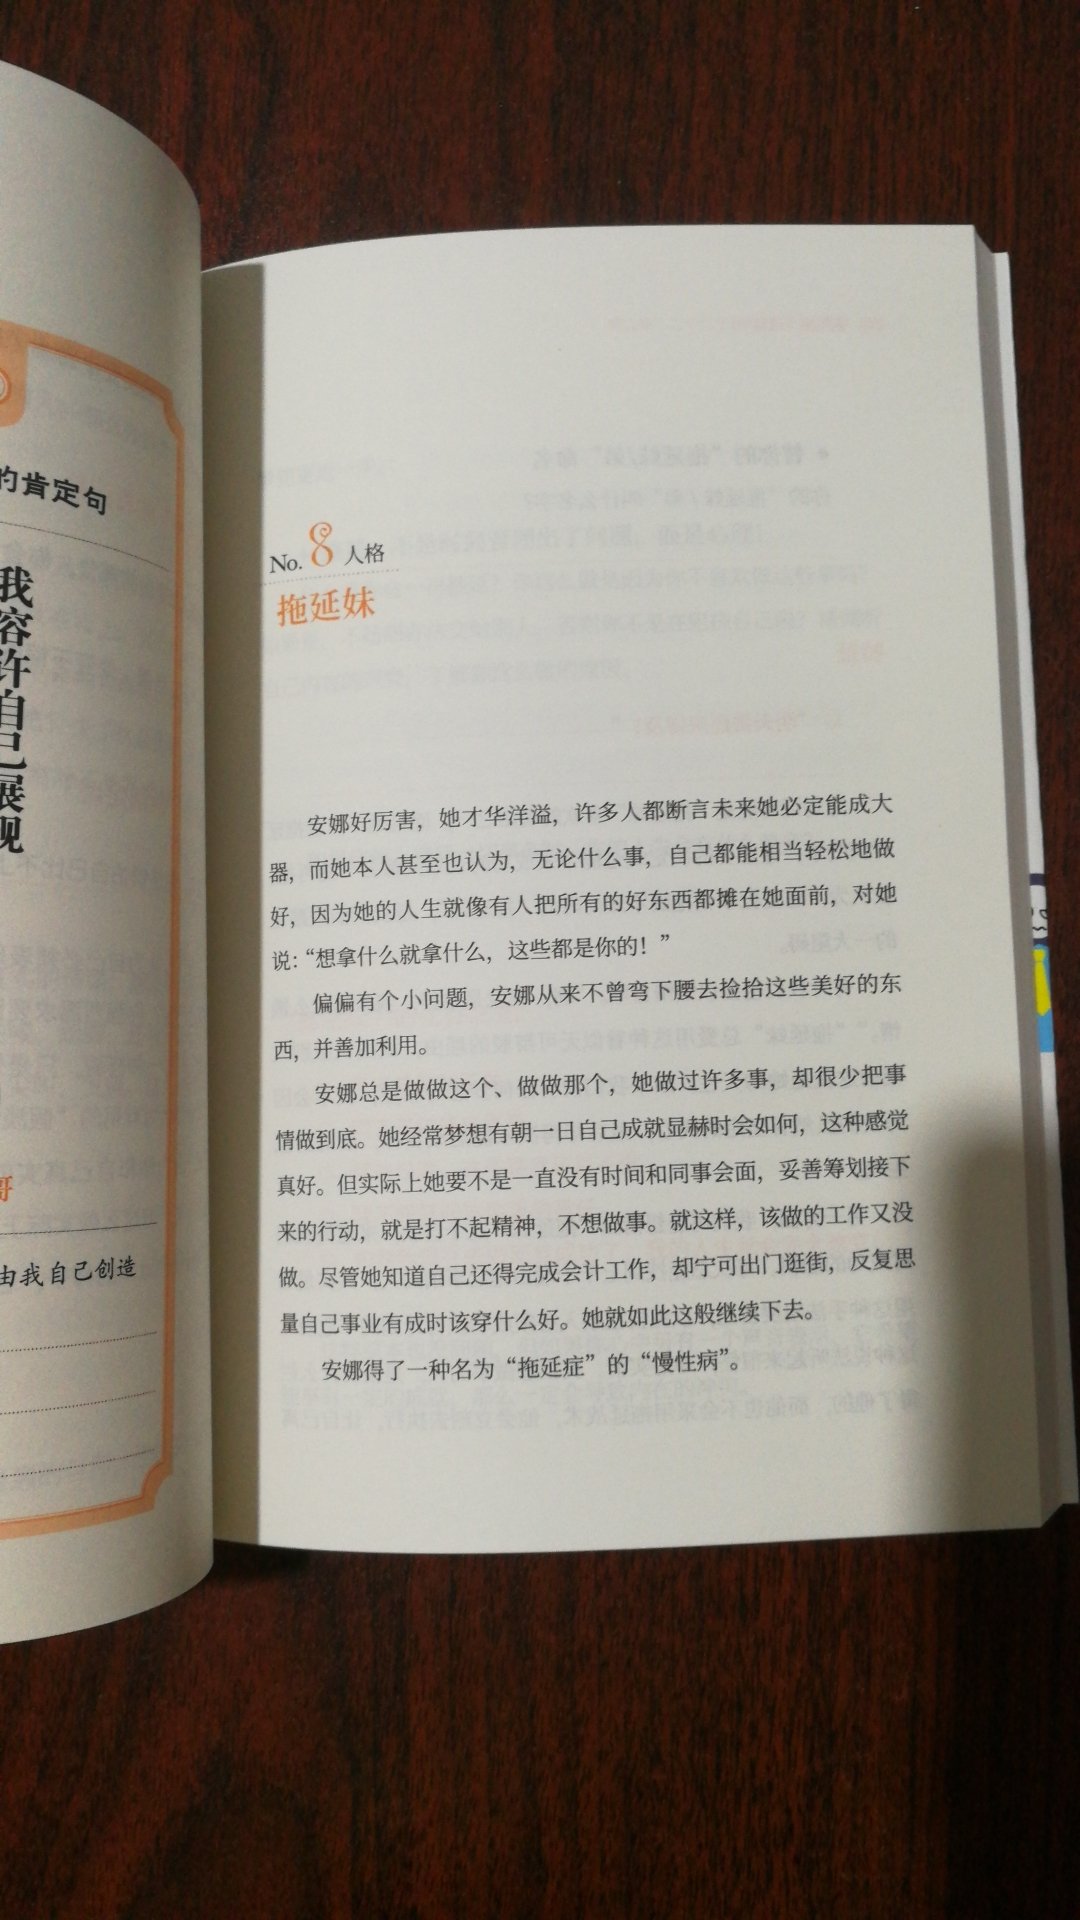 的肯定句
我容许自己展现
哥
由我自己创造
No. 8 人格
拖延妹
安娜好厉害，她才华洋溢，许多人都断言未来她必定能成大
器，而她本人甚至也认为，无论什么事，自己都能相当轻松地做
好，因为她的人生就像有人把所有的好东西都摊在她面前，对她
说：“想拿什么就拿什么，这些都是你的！”
偏偏有个小问题，安娜从来不曾弯下腰去捡拾这些美好的东
西，并善加利用。
安娜总是做做这个、做做那个，她做过许多事，却很少把事
情做到底。她经常梦想有朝一日自己成就显赫时会如何，这种感觉
真好。但实际上她要不是一直没有时间和同事会面，妥善筹划接下
来的行动，就是打不起精神，不想做事。就这样，该做的工作又没
做。尽管她知道自己还得完成会计工作，却宁可出门逛街，反复思
量自己事业有成时该穿什么好。她就如此这般继续下去。
安娜得了一种名为“拖延症”的“慢性病”。